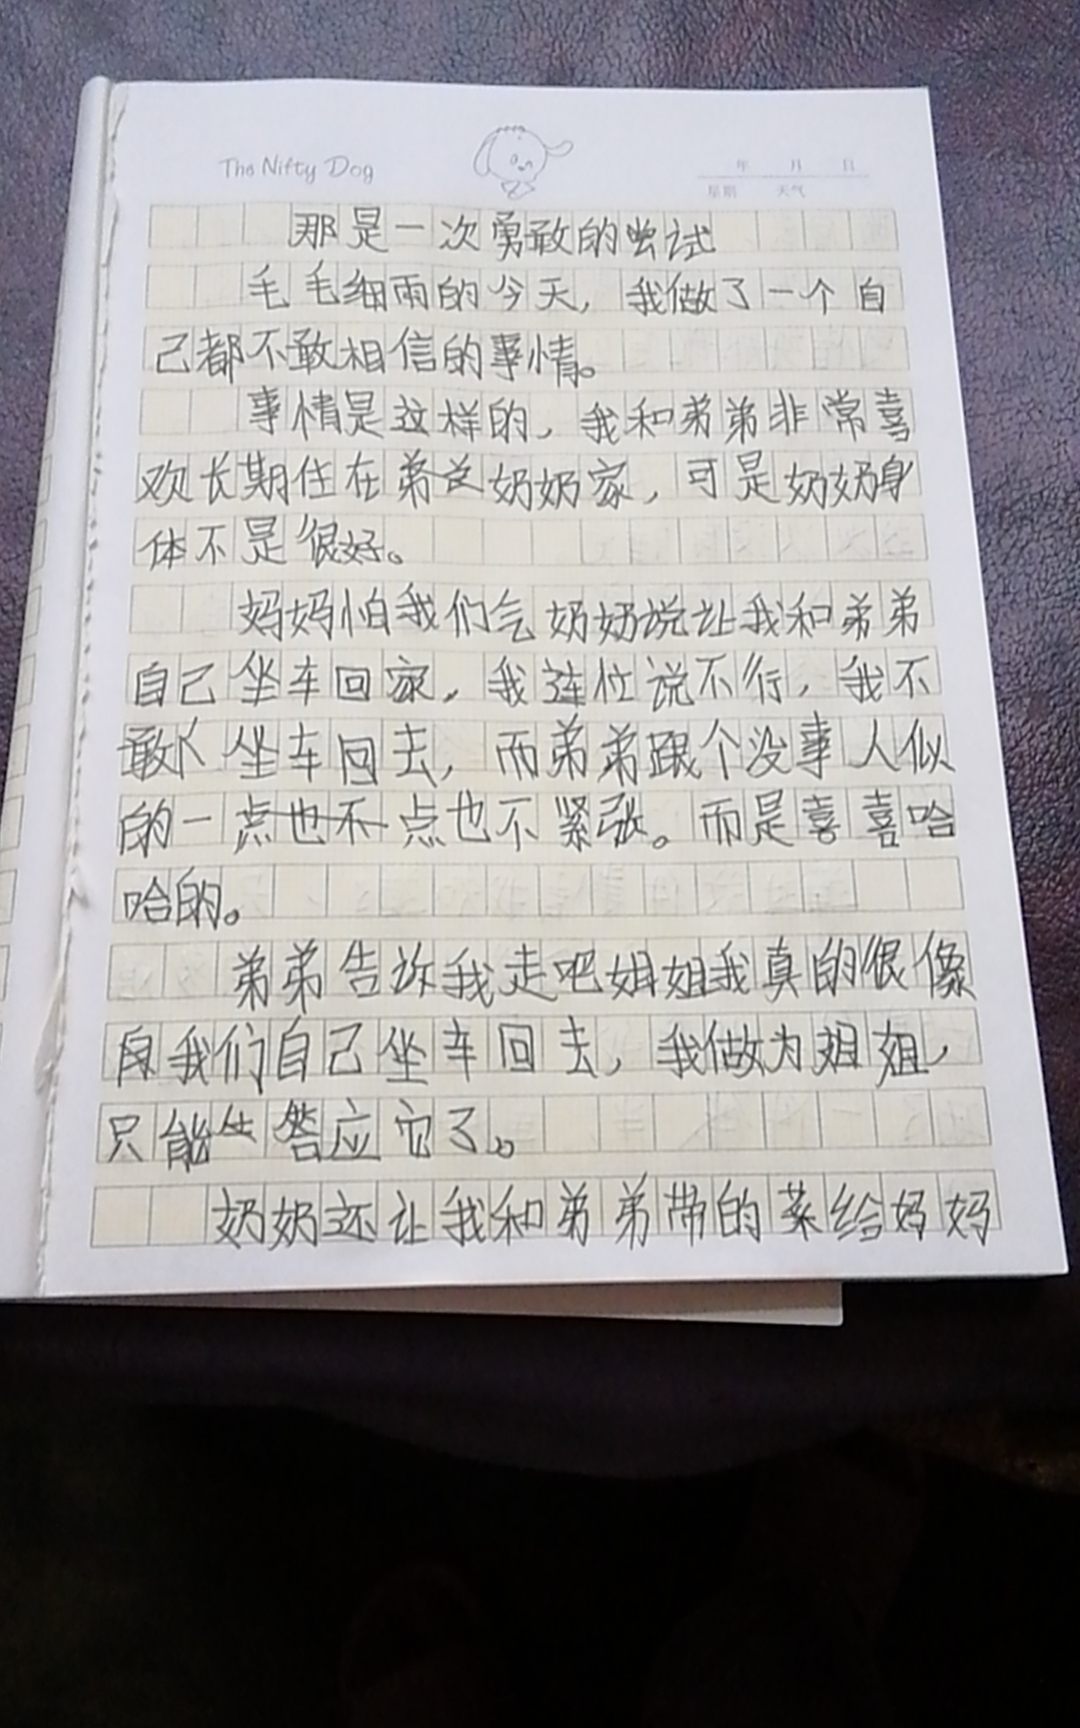 The Nifty Dog
年 月 日
星期 天气
那是一次勇敢的尝试
毛毛细雨的今天，我做了一个自
己都不敢相信的事情。
事情是这样的，我和弟弟非常喜
欢长期住在爷奶奶家，可是奶奶身
体不是很好。
妈妈怕我们气奶奶说让我和弟弟
自己坐车回家，我连忙说不行，我不
敢坐车回去，而弟弟跟个没事人似
的一点也不点也不紧张。而是喜喜哈
哈的。
弟弟告诉我走吧姐姐我真的很像
我们自己坐车回去，我做为姐姐，
只能答应它了。
奶奶还让我和弟弟带的菜给妈妈